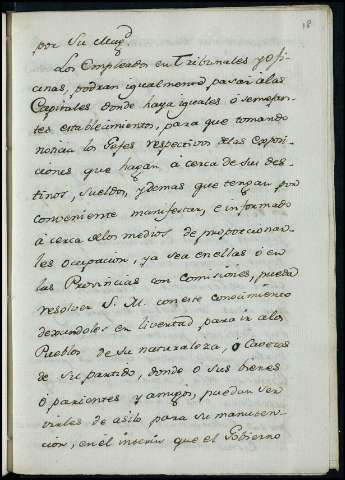 18
por Su Mag.d
Los Empleados en Tribunales y ofi
cinas, podran igualmente pasar a las
Capitales donde haya iguales ó semejan
tes establecimientos, para que tomando
noticia los Gefes respectivos de las exposi
ciones que hagan á cerca de sus des
tinos, sueldos, y demas que tengan por
conveniente manifestar, e informado
á cerca de los medios de proporcionar
les ocupacion, ya sea en ellas ó en
las Provincias con Comisiones, pueda
resolver S. M. con ese conocimiento
dexandolos en livertad, para ir a los
Pueblos de su naturaleza, o Caveras
de su partido, donde ó sus bienes
ó parientes y amigos, puedan ser
virles de asilo para su manuten
cion, en el interin que el Gobierno